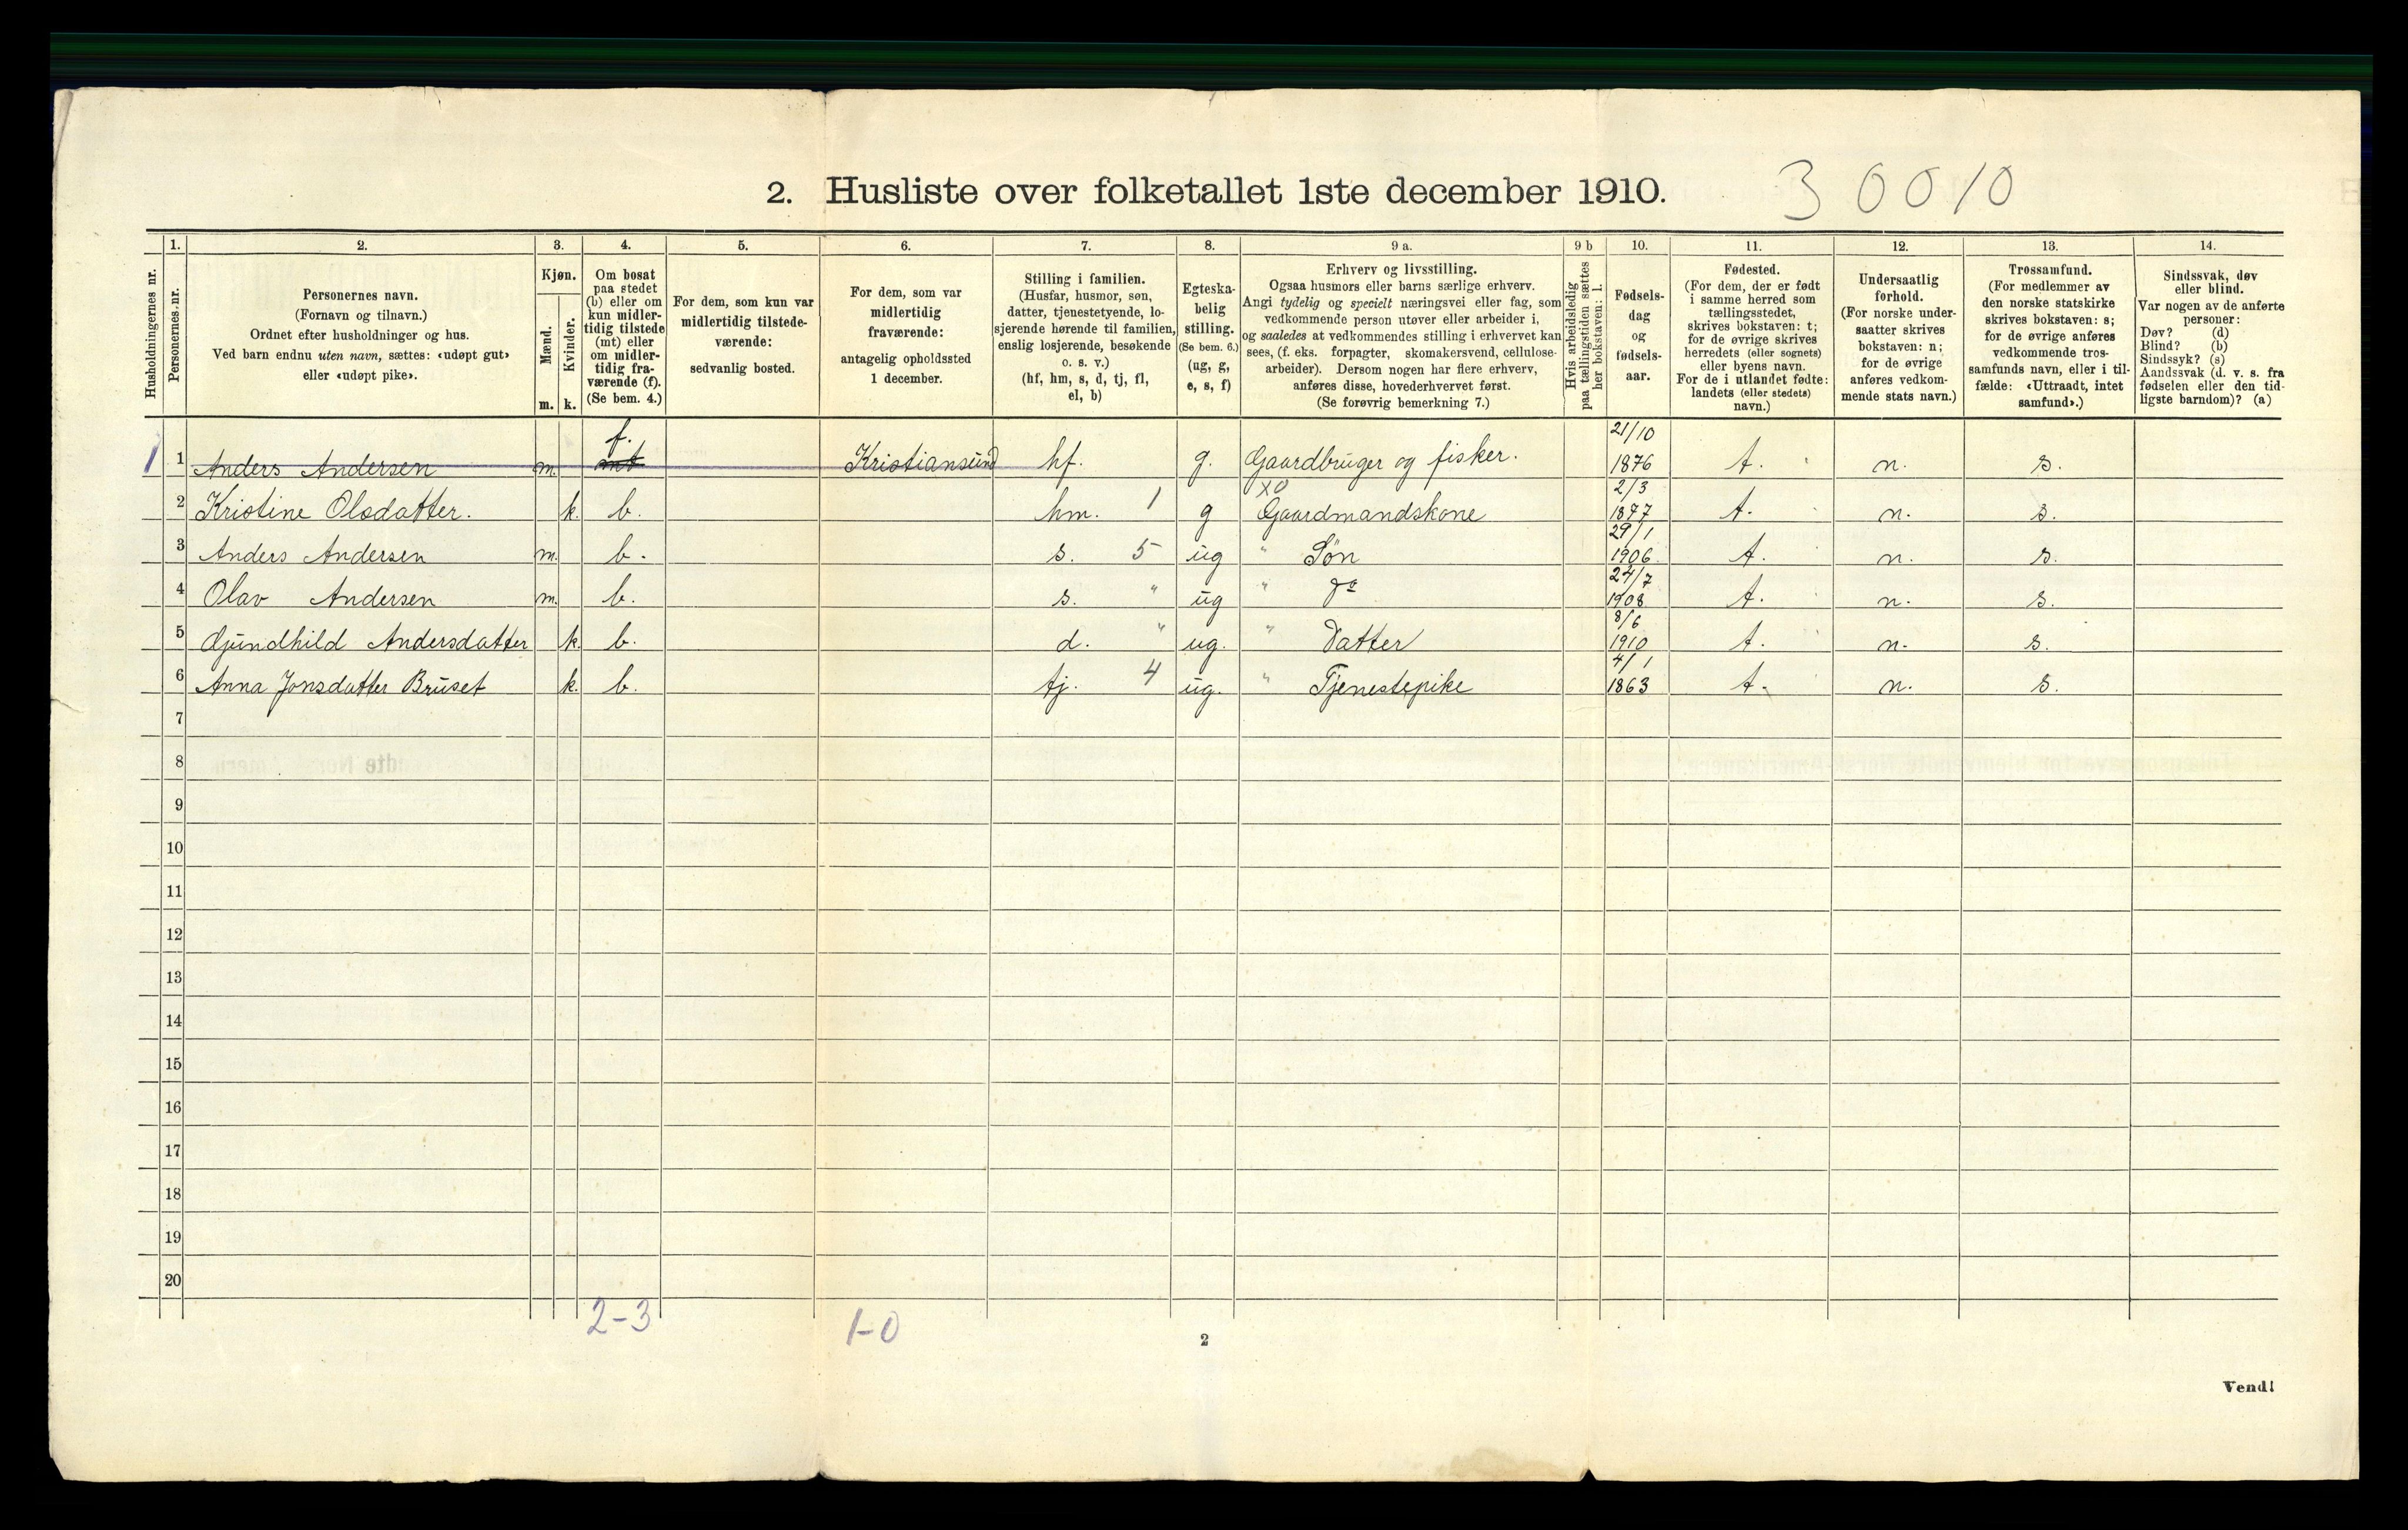 2. Husliste over folketallet 1ste december 1910. 3 0 0 1 0
Husholdningernes nr.
1. Personernes nr.
2. Personernes navn.
(Fornavn og tilnavn.)
Ordnet efter husholdninger og hus.
Ved barn endnu uten navn, sættes: «udøpt gut»
eller «udøpt pike».
3. Kjøn.
Mænd. m.
Kvinder. k.
4. Om bosat
paa stedet
(b) eller om
kun midler-
tidig tilstede
(mt) eller
om midler-
tidig fra-
værende (f).
(Se bem. 4.)
5. For dem, som kun var
midlertidig tilstede-
værende:
sedvanlig bosted.
6. For dem, som var
midlertidig
fraværende:
antagelig opholdssted
1 december.
7. Stilling i familien.
(Husfar, husmor, søn,
datter, tjenestetyende, lo-
sjerende hørende til familien,
enslig losjerende, besøkende
o. s. v.)
(hf, hm, s, d, tj, fl,
el, b)
8. Egteska-
belig
stilling.
(Se bem. 6.)
(ug, g,
e, s, f)
9 a. Erhverv og livsstilling.
Ogsaa husmors eller barns særlige erhverv.
Angi tydelig og specielt næringsvei eller fag, som
vedkommende person utøver eller arbeider i,
og saaledes at vedkommendes stilling i erhvervet kan
sees, (f. eks. forpagter, skomakersvend, cellulose-
arbeider). Dersom nogen har flere erhverv,
anføres disse, hovederhvervet først.
(Se forøvrig bemerkning 7.)
9 b Hvis arbeidsledig
paa tællingstiden sættes
her bokstaven: l.
10. Fødsels-
dag
og
fødsels-
aar.
11. Fødested.
(For dem, der er født
i samme herred som
tællingsstedet,
skrives bokstaven: t;
for de øvrige skrives
herredets (eller sognets)
eller byens navn.
For de i utlandet fødte:
landets (eller stedets)
navn.)
12. Undersaatlig
forhold.
(For norske under-
saatter skrives
bokstaven: n;
for de øvrige
anføres vedkom-
mende stats navn.)
13. Trossamfund.
(For medlemmer av
den norske statskirke
skrives bokstaven: s;
for de øvrige anføres
vedkommende tros-
samfunds navn, eller i til-
fælde: «Uttraadt, intet
samfund».)
14. Sindssvak, døv
eller blind.
Var nogen av de anførte
personer:
Døv? (d)
Blind? (b)
Sindssyk? (s)
Aandssvak (d. v. s. fra
fødselen eller den tid-
ligste barndom)? (a)
1 1 Anders Andersen m. mt f. Kristiansund hf. g. Gaardbruger og fisker. 21/10 1876 t. n. s.
2 Kristine Olsdatter. k. b. hm. 1 g XO Gaardmandskone 2/3 1877 t. n. s.
3 Anders Andersen m. b. s. 5 ug " Søn 29/1 1906. t. n. s.
4 Olav Andersen m. b. s. " ug " Do 24/7 1908 t. n. s.
5 Gjundhild Andersdatter k. b. d. " ug. " Datter 8/6 1910 t. n. s.
6 Anna Jonsdatter Bruset k. b. tj. 4 ug. " Tjenestepike 4/1 1863 t. n. s.
7
8
9
10
11
12
13
14
15
16
17
18
19
20
2-3 1-0
2
Vend!